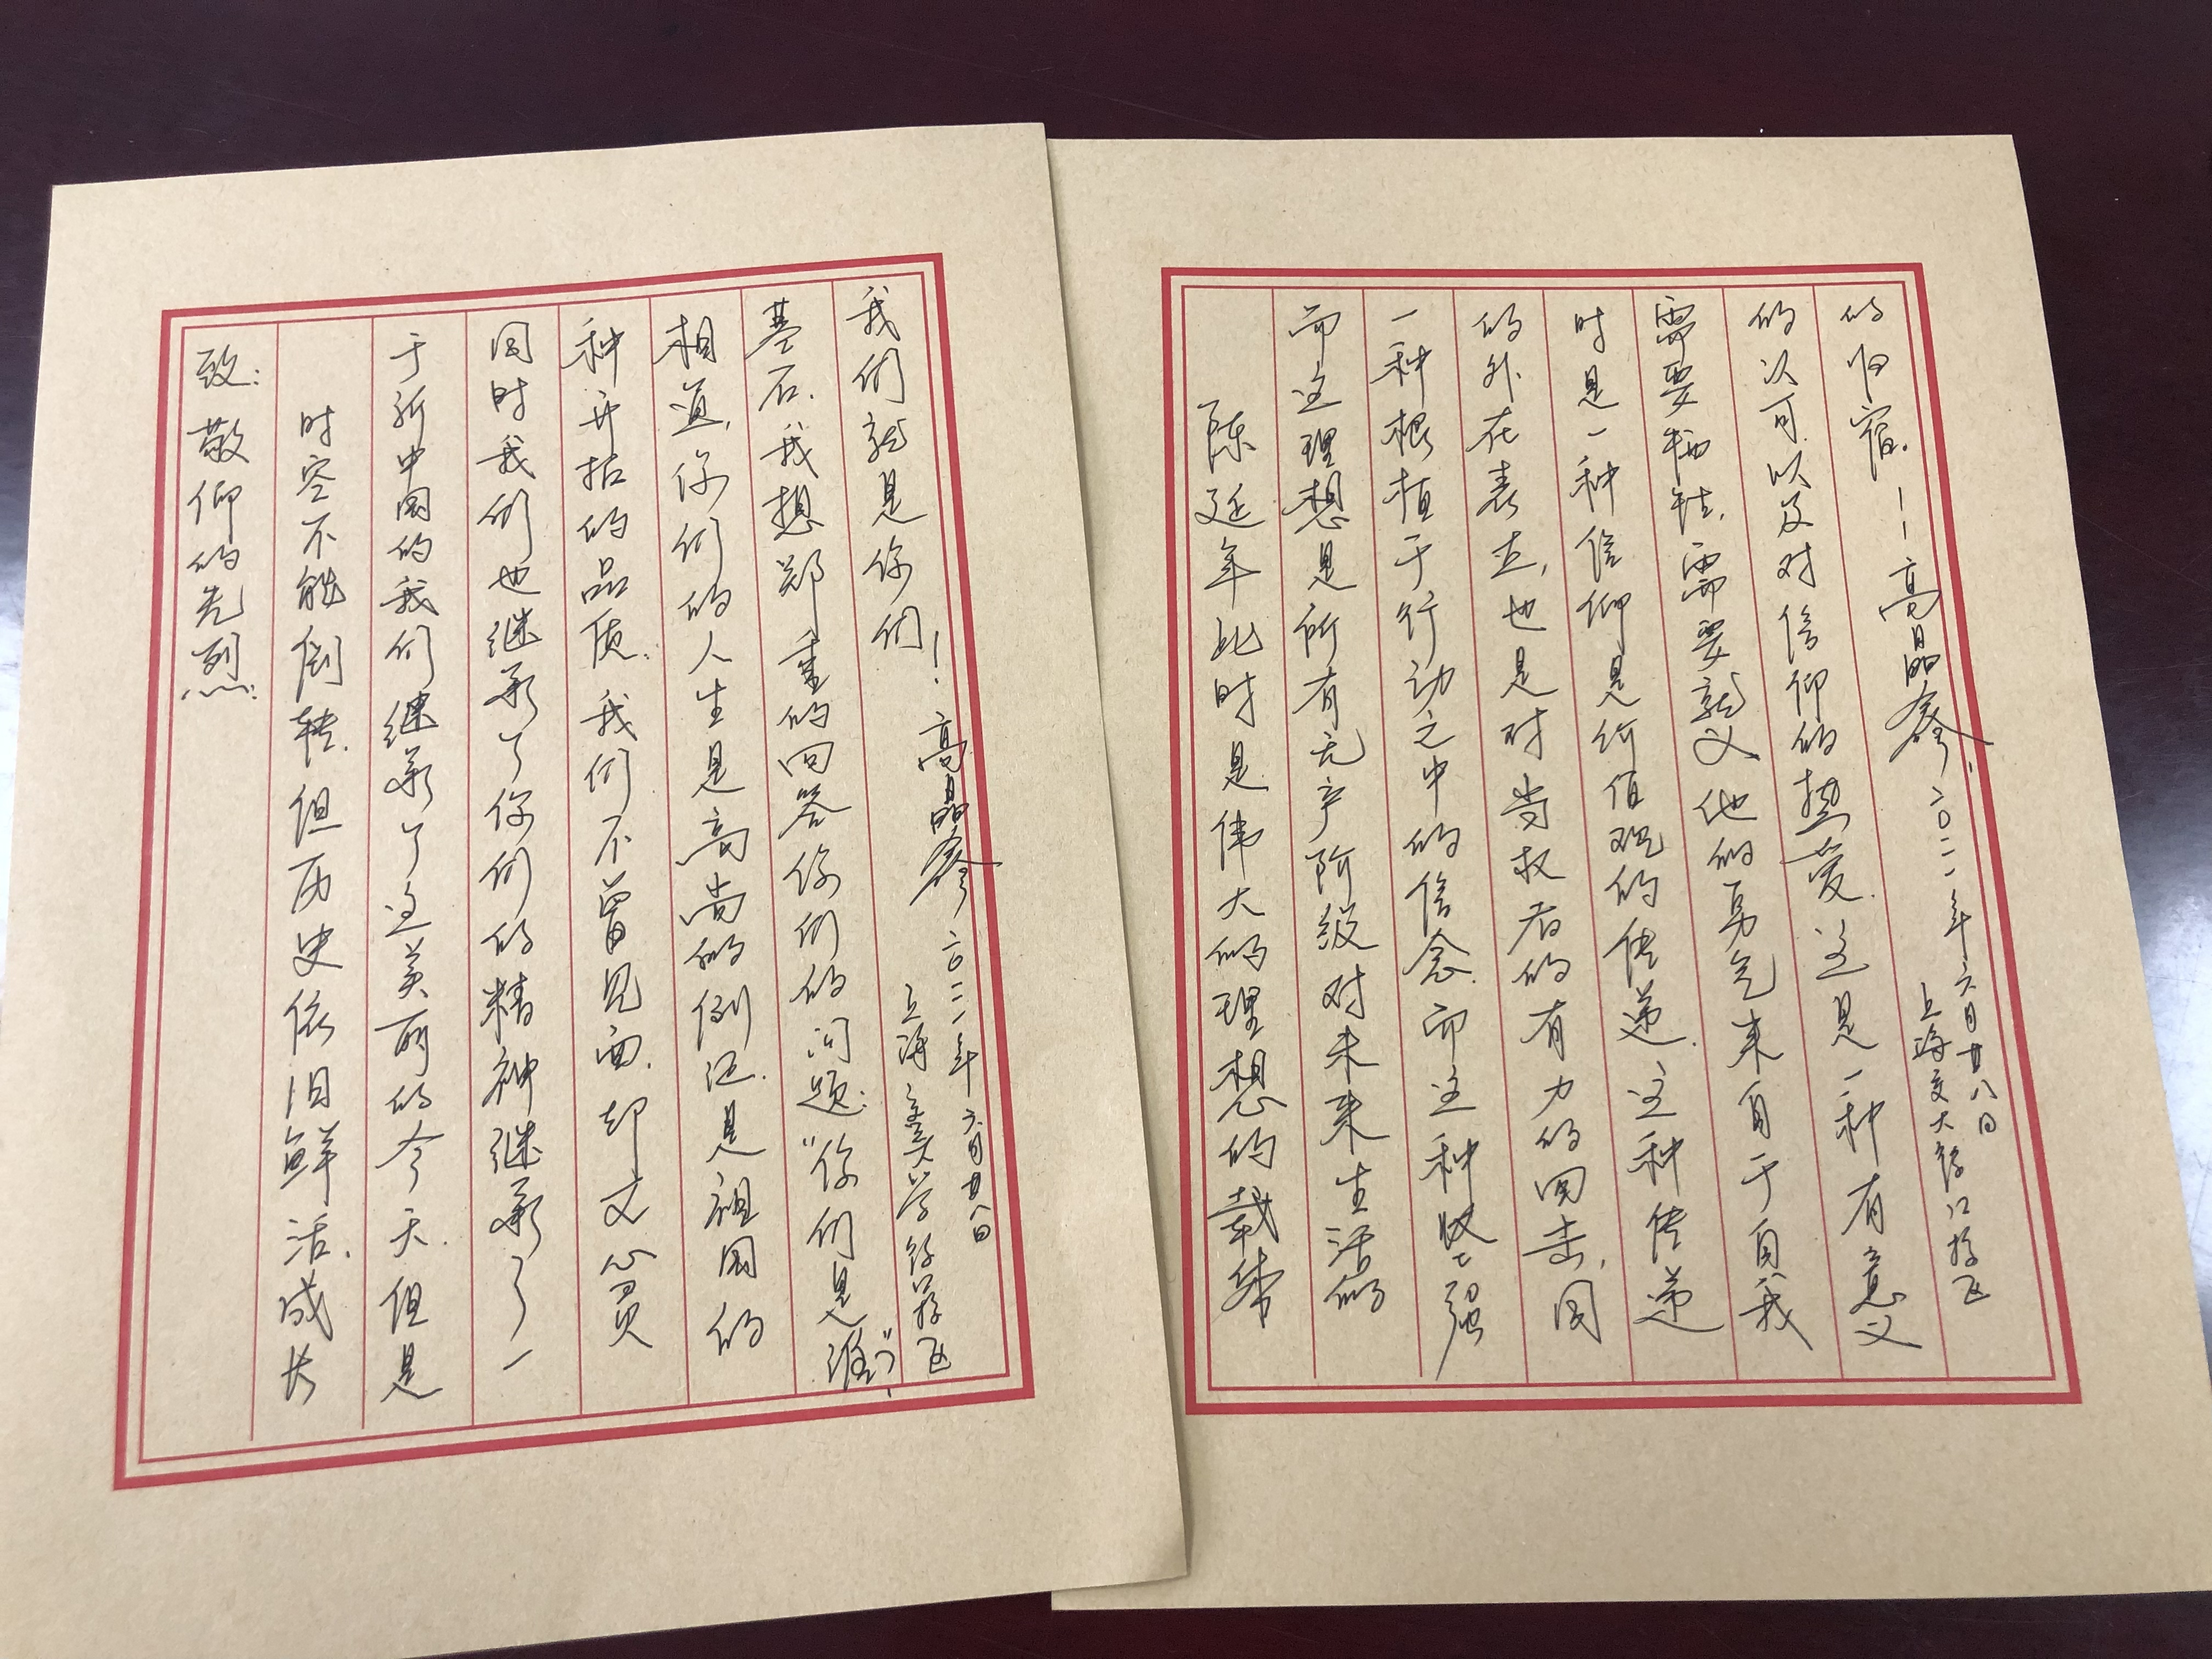 致：敬仰的先烈：
时空不能倒转，但历史依旧鲜活，成长
于新中国的我们继承了这美丽的今天，但是
同时我们也继承了你们的精神继承了一
种开拓的品质。我们不曾见面，却文心贯
相道，你们的人生是高尚的例证，是祖国的
基石，我想郑重的回答你们的问题：“你们是谁？”
我们就是你们！高晶 二〇二一年六月廿八日
上海 大学 徐汇校区
陈延年此时是伟大的理想的载体
而这理想是所有无产阶级对未来生活的
一种根植于行动之中的信念，而这种坚强
的外在表立，也是对当权者的有力的回击，同
时是一种信仰是价值观的传递，这种传递
需要牺牲，需要就义他的勇气来自于自我
的认可，以及对信仰的热爱，这是一种有意义
的归宿。——高晶 二〇二一年六月廿八日
上海交大徐汇校区